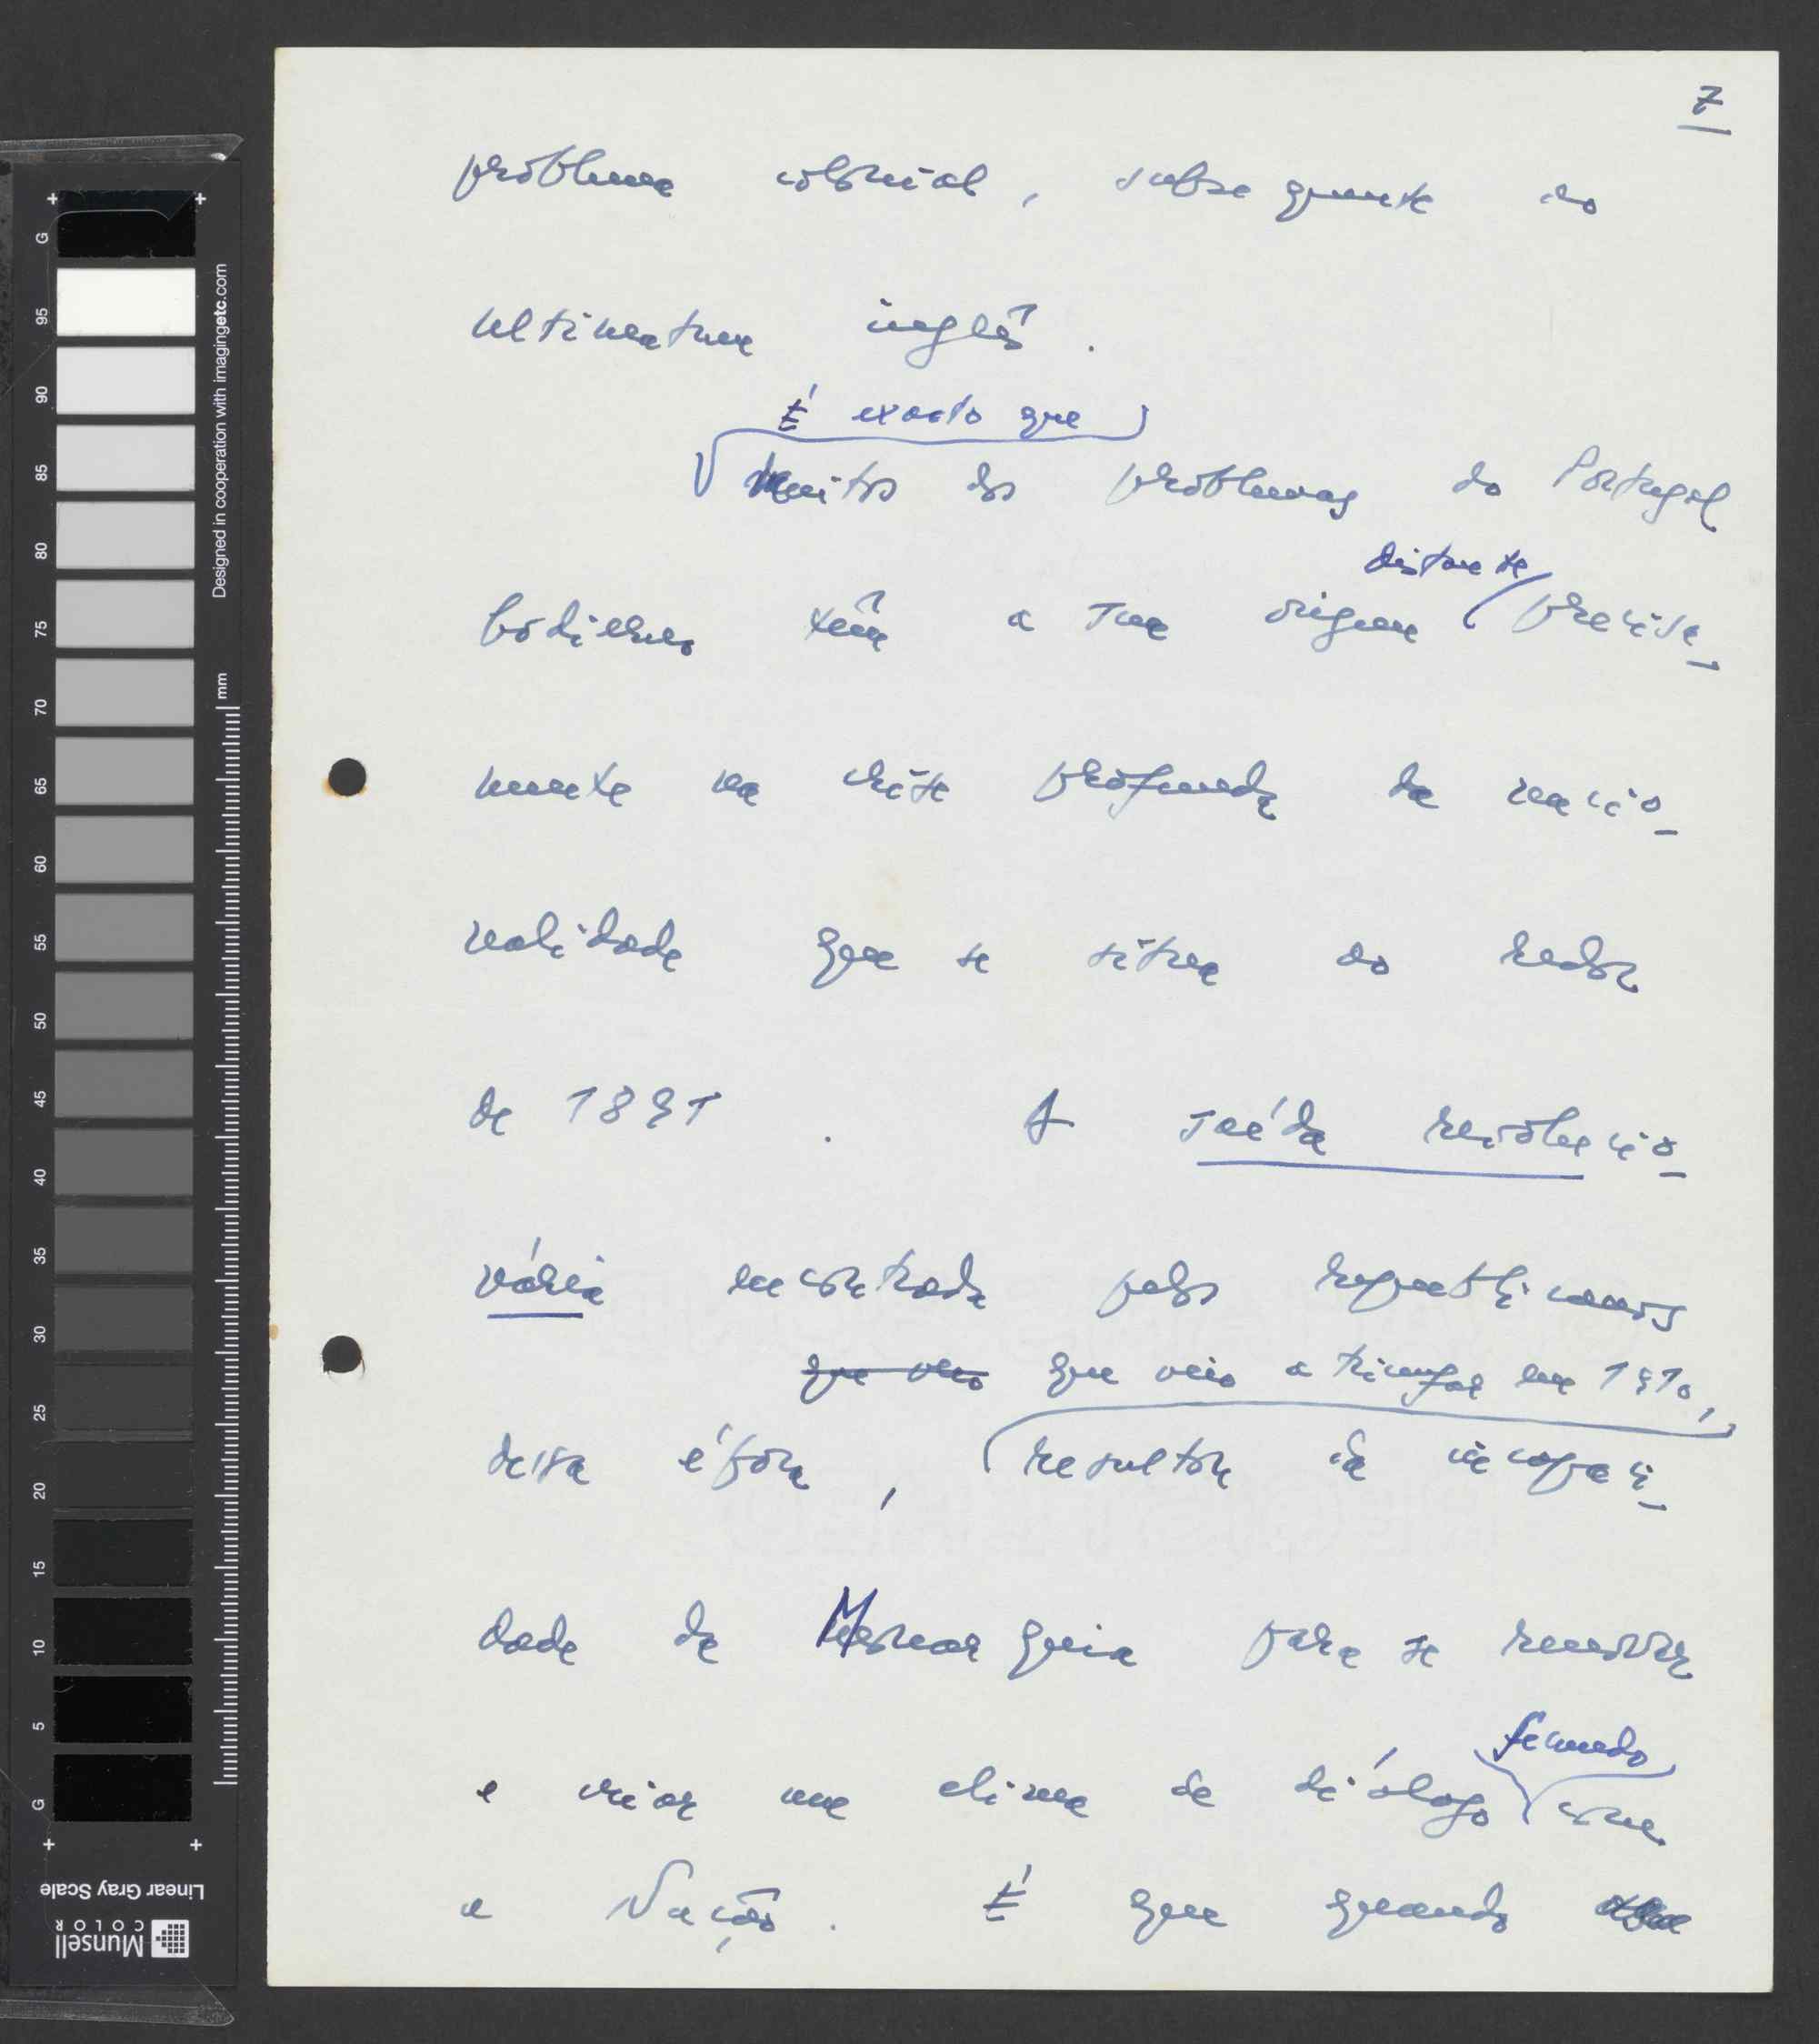 7
problema colonial, subsequente ao
ultimatum inglês.
É exacto que
muitos dos problemas do Portugal
distante
hodierno têm a sua origem precisa_
mente na crise profunda da nacio_
nalidade que se situa ao redor
de 1891. A saída revolucio_
nária encontrada pelos republicanos
que veio que veio a triunfar em 1910,
dessa época, resultou da incapaci_
dade da Monarquia para se renovar
fecundo
e criar um clima de diálogo com
a Nação. É que quando
G 95 90 85 80 75 70 65 60 55 50 45 40 35 30 25 20 15 10 5 G
Designed in cooperation with imagingetc.com
mm
Linear Gray Scale
Munsell
COLOR